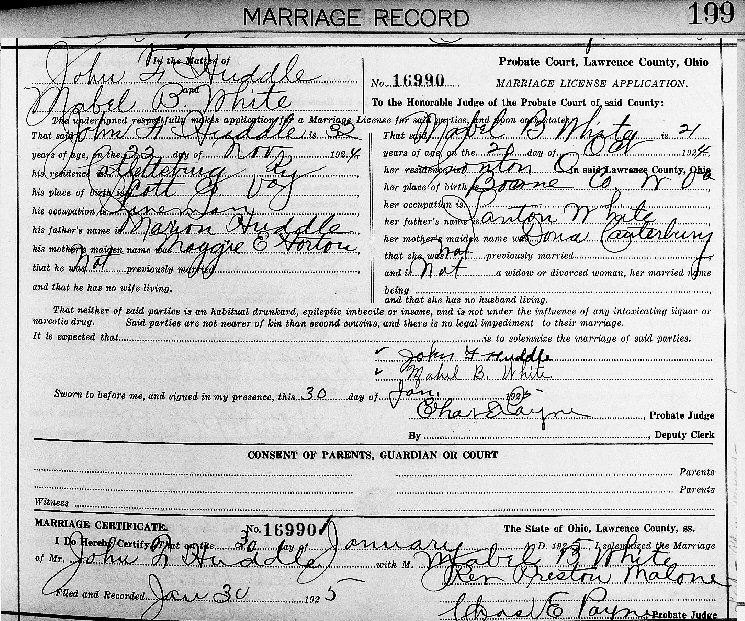 MARRIAGE RECORD 199
In the Matter of
John F Huddle
and
Mabel B White
The undersigned respectfully makes application for a Marriage License for said parties, and upon oath states:
That said John F Huddle is 32
years of age, on the 22 day of Nov 1924
his residence is Catlettsburg Ky
his place of birth is Scott Co Va
his occupation is
his father's name is Marion Huddle
his mother's maiden name was Maggie E Horton
that he was not previously married
and that he has no wife living.
Probate Court, Lawrence County, Ohio
No. 16990 MARRIAGE LICENSE APPLICATION.
To the Honorable Judge of the Probate Court of said County:
That said Mabel B White is 21
years of age, on the 21 day of Oct 1924
her residence is Ironton O in said Lawrence County, Ohio
her place of birth is Boone Co W Va
her occupation is
her father's name is Canton White
her mother's maiden name was Dona Canterbury
that she was not previously married
and is not a widow or divorced woman, her married name
being
and that she has no husband living.
That neither of said parties is an habitual drunkard, epileptic imbecile or insane, and is not under the influence of any intoxicating liquor or
narcotic drug. Said parties are not nearer of kin than second cousins, and there is no legal impediment to their marriage.
It is expected that is to solemnize the marriage of said parties.
John F Huddle
Mabel B. White
Sworn to before me, and signed in my presence, this 30 day of Jan. 1925
Chas E Payne, Probate Judge
By , Deputy Clerk
CONSENT OF PARENTS, GUARDIAN OR COURT
Parents
Parents
Witness
MARRIAGE CERTIFICATE. No. 16990 The State of Ohio, Lawrence County, ss.
I Do Hereby Certify that on the 30 day of January A. D. 1925, I solemnized the Marriage
of Mr. John F Huddle with M. Mabel B White
Rev Preston Malone
Filed and Recorded Jan 30 1925
Chas E Payne Probate Judge